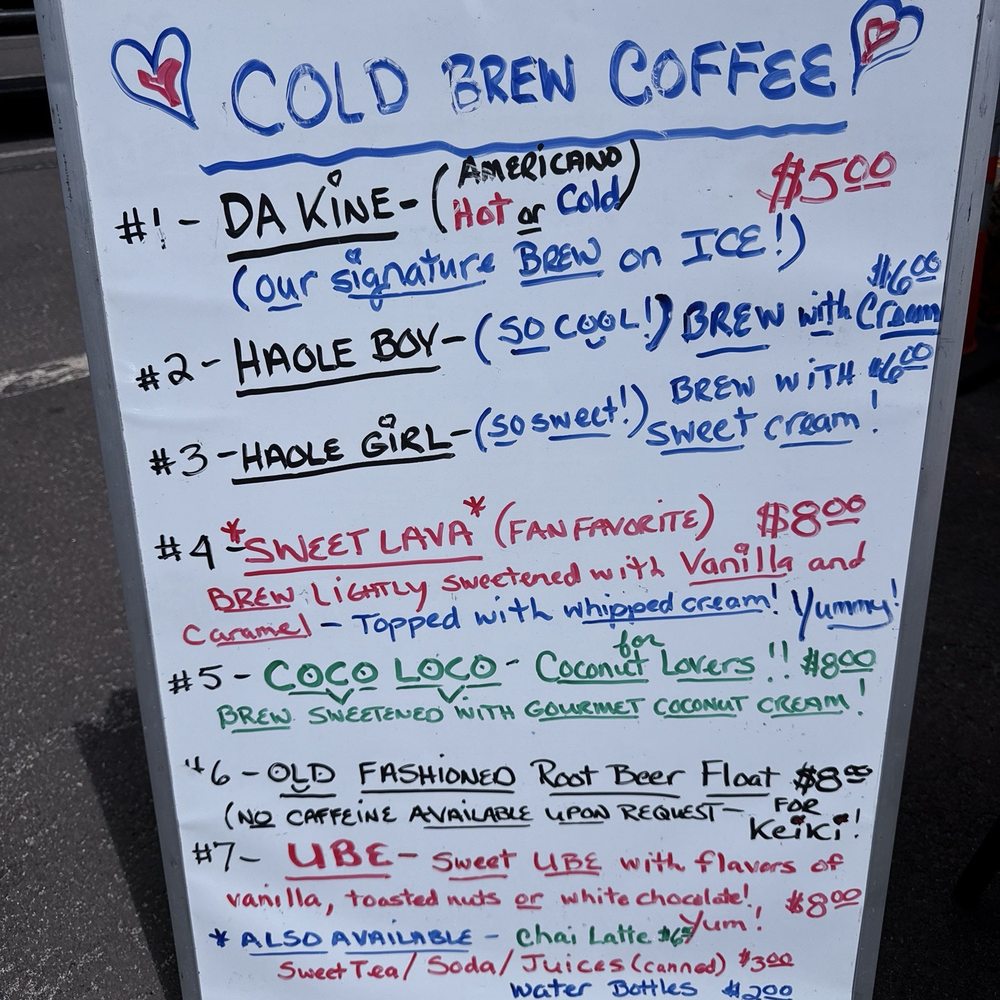 COLD BREW COFFEE
#1 - DA KINE - (AMERICANO Hot or Cold) $5.00
(our signature BREW on ICE!)
#2 - HAOLE BOY - (SO COOL!) BREW with Cream $6.00
#3 - HAOLE GIRL - (so sweet!) BREW WITH sweet cream! $6.00
#4 - *SWEET LAVA* (FAN FAVORITE) $8.00
BREW LIGHTLY sweetened with Vanilla and
Caramel - Topped with whipped cream! Yummy!
#5 - COCO LOCO - for Coconut Lovers!! $8.00
BREW SWEETENED WITH GOURMET COCONUT CREAM!
#6 - OLD FASHIONED Root Beer Float $8.00
(NO CAFFEINE AVAILABLE UPON REQUEST - FOR Keiki!
#7 - UBE - Sweet UBE with flavors of
vanilla, toasted nuts or white chocolate! $8.00
Yum!
* ALSO AVAILABLE - Chai Latte
Sweet Tea/Soda/Juices (canned) $3.00
Water Bottles $2.00